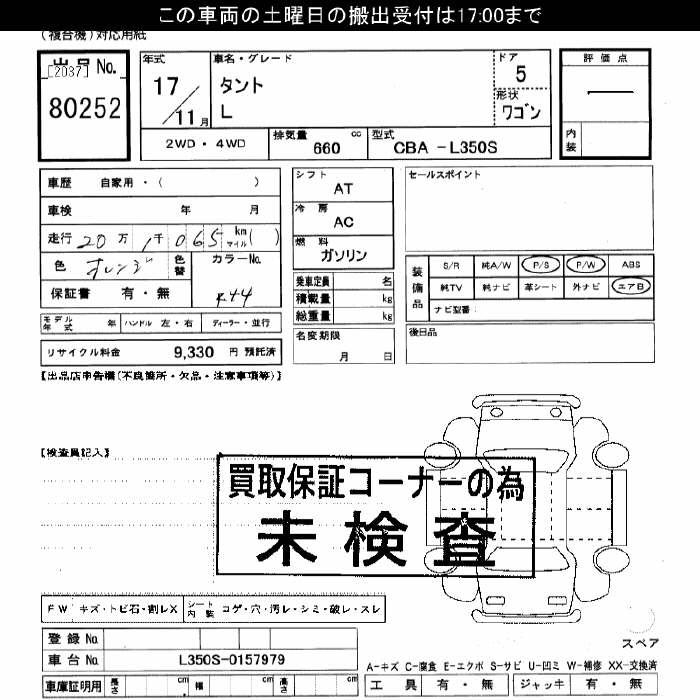 この車両の土曜日の搬出受付は17:00まで
(複合機)対応用紙
出品No.
[2037]
80252
年式
17/11月
車名・グレード
タント
L
ドア
5
形状
ワゴン
評価点
―
内装
2WD・4WD
排気量 660 cc
型式 CBA -L350S
車歴 自家用・( )
車検 年 月
走行 20万1千065 km マイル( )
色 オレンジ
色替
カラーNo.
R44
保証書 有・無
シフト
AT
冷房
AC
燃料
ガソリン
乗車定員 名
積載量 kg
総重量 kg
名変期限
月 日
セールスポイント
装備品
S/R 純A/W P/S P/W ABS
純TV 純ナビ 革シート 外ナビ エアB
ナビ型番
後日品
モデル年式 年 ハンドル 左・右 ディーラー・並行
リサイクル料金 9,330 円 預託済
【出品店申告欄(不良箇所・欠品・注意事項等)】
【検査員記入】
買取保証コーナーの為
未検査
FW キズ・トビ石・割レX シート内装 コゲ・穴・汚レ・シミ・破レ・スレ
登録No.
車台No. L350S-0157979
車庫証明用 長さ cm 幅 cm 高さ cm
スペア
A-キズ C-腐食 E-エクボ S-サビ U-凹ミ W-補修 XX-交換済
工具 有・無 ジャッキ 有・無